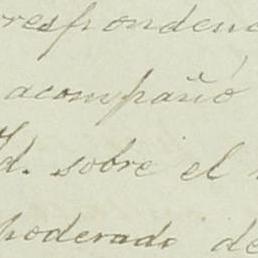 respondenc
acompañó
Id. sobre el
poderado de